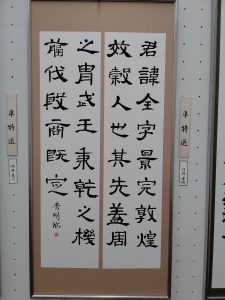 君諱全字景完敦煌
效穀人也其先蓋周
之冑武王秉乾之機
翦伐殷商既定
準特選
準特選